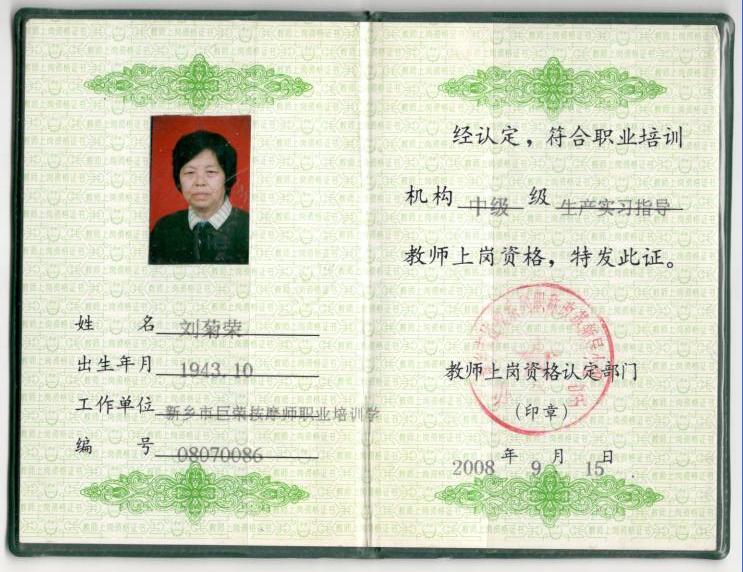 姓 名 刘菊荣
出生年月 1943.10
工作单位 新乡市巨荣按摩师职业培训学
编 号 08070086
经认定，符合职业培训
机构 中级 级 生产实习指导
教师上岗资格，特发此证。
教师上岗资格认定部门
（印章）
2008 年 9 月 15 日